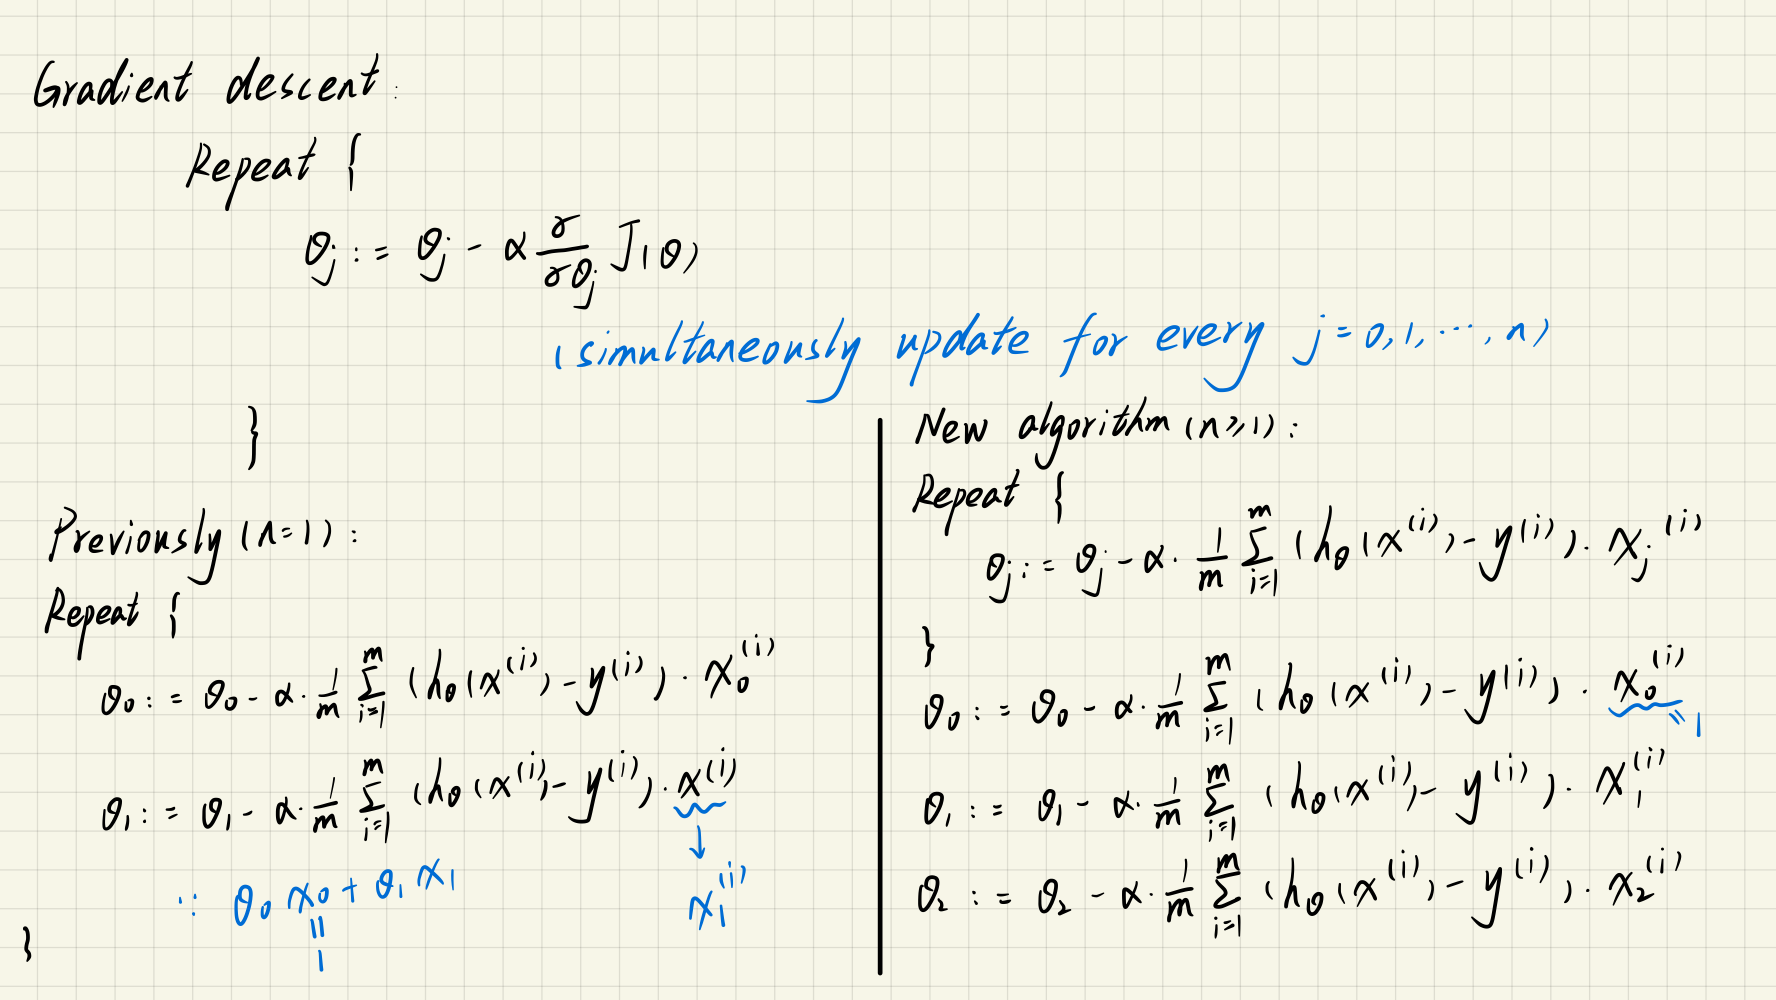 Gradient descent:
Repeat {
θj := θj - α ∂/∂θj J(θ)
(simultaneously update for every j=0,1,⋯,n)
}
Previously (n=1):
Repeat {
θ₀ := θ₀ - α · 1/m ∑_{i=1}^{m} (h_θ(x^(i)) - y^(i)) · x₀^(i)
θ₁ := θ₁ - α · 1/m ∑_{i=1}^{m} (h_θ(x^(i)) - y^(i)) · x^(i)
↓
x₁^(i)
∵ θ₀ x₀ + θ₁ x₁
=
1
}
New algorithm (n≥1):
Repeat {
θj := θj - α · 1/m ∑_{i=1}^{m} (h_θ(x^(i)) - y^(i)) · xj^(i)
}
θ₀ := θ₀ - α · 1/m ∑_{i=1}^{m} (h_θ(x^(i)) - y^(i)) · x₀^(i)
= 1
θ₁ := θ₁ - α · 1/m ∑_{i=1}^{m} (h_θ(x^(i)) - y^(i)) · x₁^(i)
θ₂ := θ₂ - α · 1/m ∑_{i=1}^{m} (h_θ(x^(i)) - y^(i)) · x₂^(i)